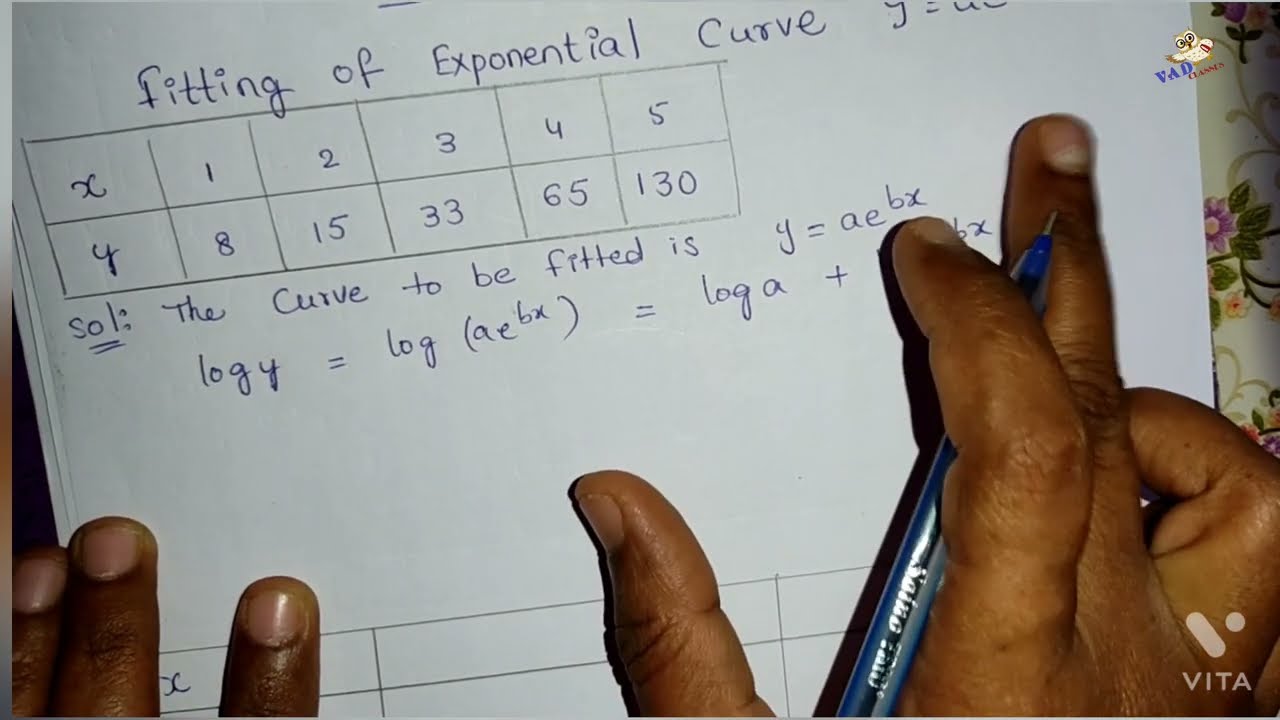 Fitting of Exponential Curve y =
x 1 2 3 4 5
y 8 15 33 65 130
Sol: The Curve to be fitted is y = ae^bx
log y = log (ae^bx) = log a + bx
x
VAD CLASSES
VITA